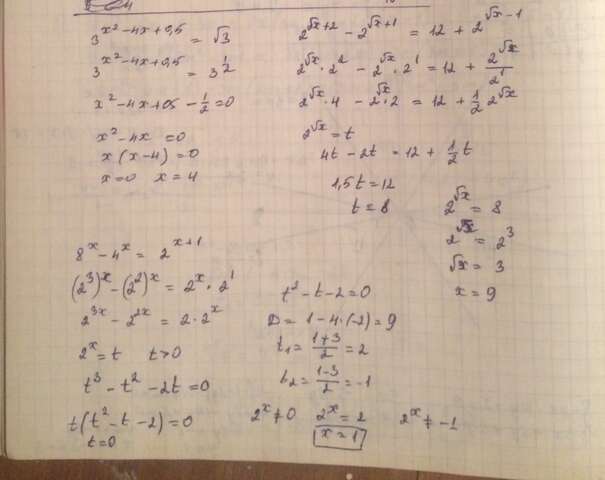 3^{x²-4x+0,5} = √3
3^{x²-4x+0,5} = 3^{1/2}
x²-4x+0,5 - 1/2 = 0
x²-4x = 0
x(x-4) = 0
x=0 x=4
2^{√x+2} - 2^{√x+1} = 12 + 2^{√x-1}
2^{√x} · 2² - 2^{√x} · 2¹ = 12 + 2^{√x}/2¹
2^{√x} · 4 - 2^{√x} · 2 = 12 + 1/2 2^{√x}
2^{√x} = t
4t - 2t = 12 + 1/2 t
1,5t = 12
t = 8
2^{√x} = 8
2^{√x} = 2³
√x = 3
x = 9
8^x - 4^x = 2^{x+1}
(2³)^x - (2²)^x = 2^x · 2¹
2^{3x} - 2^{2x} = 2 · 2^x
2^x = t t>0
t³ - t² - 2t = 0
t(t² - t - 2) = 0
t=0
t² - t - 2 = 0
D = 1 - 4·(-2) = 9
t₁ = (1+3)/2 = 2
t₂ = (1-3)/2 = -1
2^x ≠ 0 2^x = 2 2^x ≠ -1
x = 1